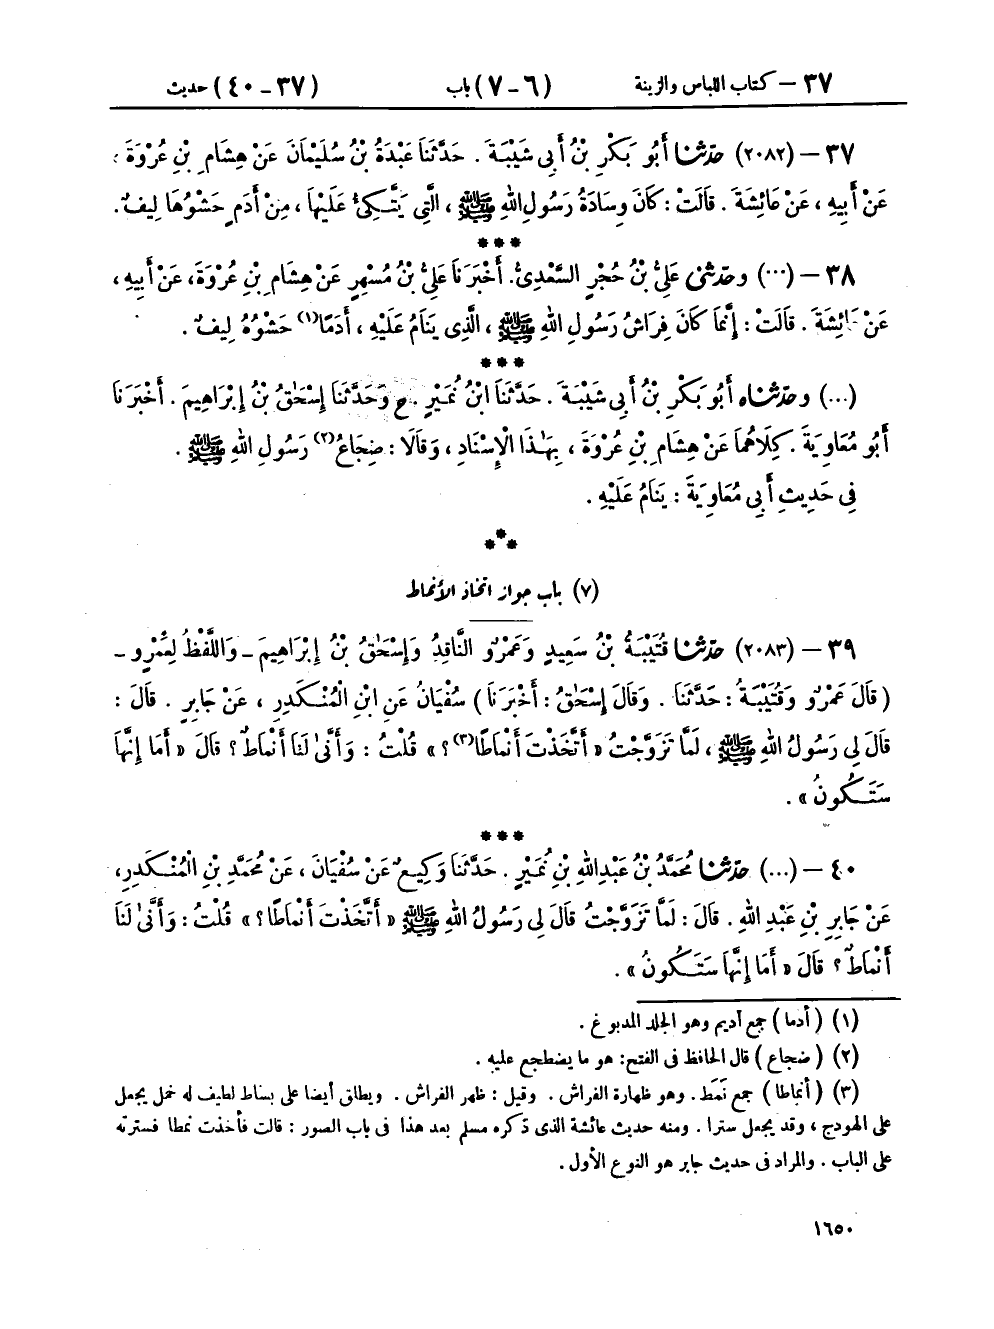 ٣٧ – كتاب اللباس والزينة (٦ – ٧) باب (٣٧ – ٤٠) حديث
٣٧ – (٢٠٨٢) حدّثنا أَبُو بَكْرِ بْنُ أَبِي شَيْبَةَ . حَدَّثَنَا عَبْدَةُ بْنُ سُلَيْمَانَ عَنْ هِشَامِ بْنِ عُرْوَةَ ؛
عَنْ أَبِيهِ ، عَنْ عَائِشَةَ . قَالَتْ : كَانَ وِسَادَةُ رَسُولِ اللهِ ﷺ ، الَّتِي يَتَّكِئُ عَلَيْهَا ، مِنْ أَدَمٍ حَشْوُهَا لِيفٌ .
***
٣٨ – (...) وحدّثني عَلِيُّ بْنُ حُجْرٍ السَّعْدِيُّ. أَخْبَرَنَا عَلِيُّ بْنُ مُسْهِرٍ عَنْ هِشَامِ بْنِ عُرْوَةَ، عَنْ أَبِيهِ ،
عَنْ عَائِشَةَ . قَالَتْ : إِنَّمَا كَانَ فِرَاشُ رَسُولِ اللهِ ﷺ ، الَّذِي يَنَامُ عَلَيْهِ ، أَدَمًا(١) حَشْوُهُ لِيفٌ .
***
(...) وحدّثناه أَبُو بَكْرِ بْنُ أَبِي شَيْبَةَ . حَدَّثَنَا ابْنُ نُمَيْرٍ . ح وَحَدَّثَنَا إِسْحَٰقُ بْنُ إِبْرَاهِيمَ . أَخْبَرَنَا
أَبُو مُعَاوِيَةَ . كِلَاهُمَا عَنْ هِشَامِ بْنِ عُرْوَةَ ، بِهَٰذَا الْإِسْنَادِ ، وَقَالَا : ضِجَاعُ(٢) رَسُولِ اللهِ ﷺ .
فِي حَدِيثِ أَبِي مُعَاوِيَةَ : يَنَامُ عَلَيْهِ .
***
(٧) باب جواز اتخاذ الأنماط
٣٩ – (٢٠٨٣) حدّثنا قُتَيْبَةُ بْنُ سَعِيدٍ وَعَمْرٌو النَّاقِدُ وَإِسْحَٰقُ بْنُ إِبْرَاهِيمَ – وَاللَّفْظُ لِعَمْرٍو –
( قَالَ عَمْرٌو وَقُتَيْبَةُ : حَدَّثَنَا . وَقَالَ إِسْحَٰقُ : أَخْبَرَنَا ) سُفْيَانُ عَنِ ابْنِ الْمُنْكَدِرِ ، عَنْ جَابِرٍ . قَالَ :
قَالَ لِي رَسُولُ اللهِ ﷺ ، لَمَّا تَزَوَّجْتُ « أَتَّخَذْتَ أَنْمَاطًا(٣)؟ » قُلْتُ : وَأَنَّىٰ لَنَا أَنْمَاطٌ ؟ قَالَ « أَمَا إِنَّهَا
سَتَكُونُ » .
***
٤٠ – (...) حدّثنا مُحَمَّدُ بْنُ عَبْدِ اللهِ بْنِ نُمَيْرٍ . حَدَّثَنَا وَكِيعٌ عَنْ سُفْيَانَ ، عَنْ مُحَمَّدِ بْنِ الْمُنْكَدِرِ،
عَنْ جَابِرِ بْنِ عَبْدِ اللهِ . قَالَ : لَمَّا تَزَوَّجْتُ قَالَ لِي رَسُولُ اللهِ ﷺ « أَتَّخَذْتَ أَنْمَاطًا؟ » قُلْتُ : وَأَنَّىٰ لَنَا
أَنْمَاطٌ ؟ قَالَ « أَمَا إِنَّهَا سَتَكُونُ » .
(١) ( أدما ) جمع آديم وهو الجلد المدبوغ .
(٢) ( ضجاع ) قال الحافظ فى الفتح: هو ما يضطجع عليه .
(٣) ( أنماطا ) جمع نَمَط . وهو ظهارة الفراش . وقيل : ظهر الفراش . ويطلق أيضا على بساط لطيف له خمل يجعل
على الهودج ، وقد يجعل سترا . ومنه حديث عائشة الذى ذكره مسلم بعد هذا فى باب الصور : قالت فأخذت نمطا فسترته
على الباب . والمراد فى حديث جابر هو النوع الأول .
١٦٥٠